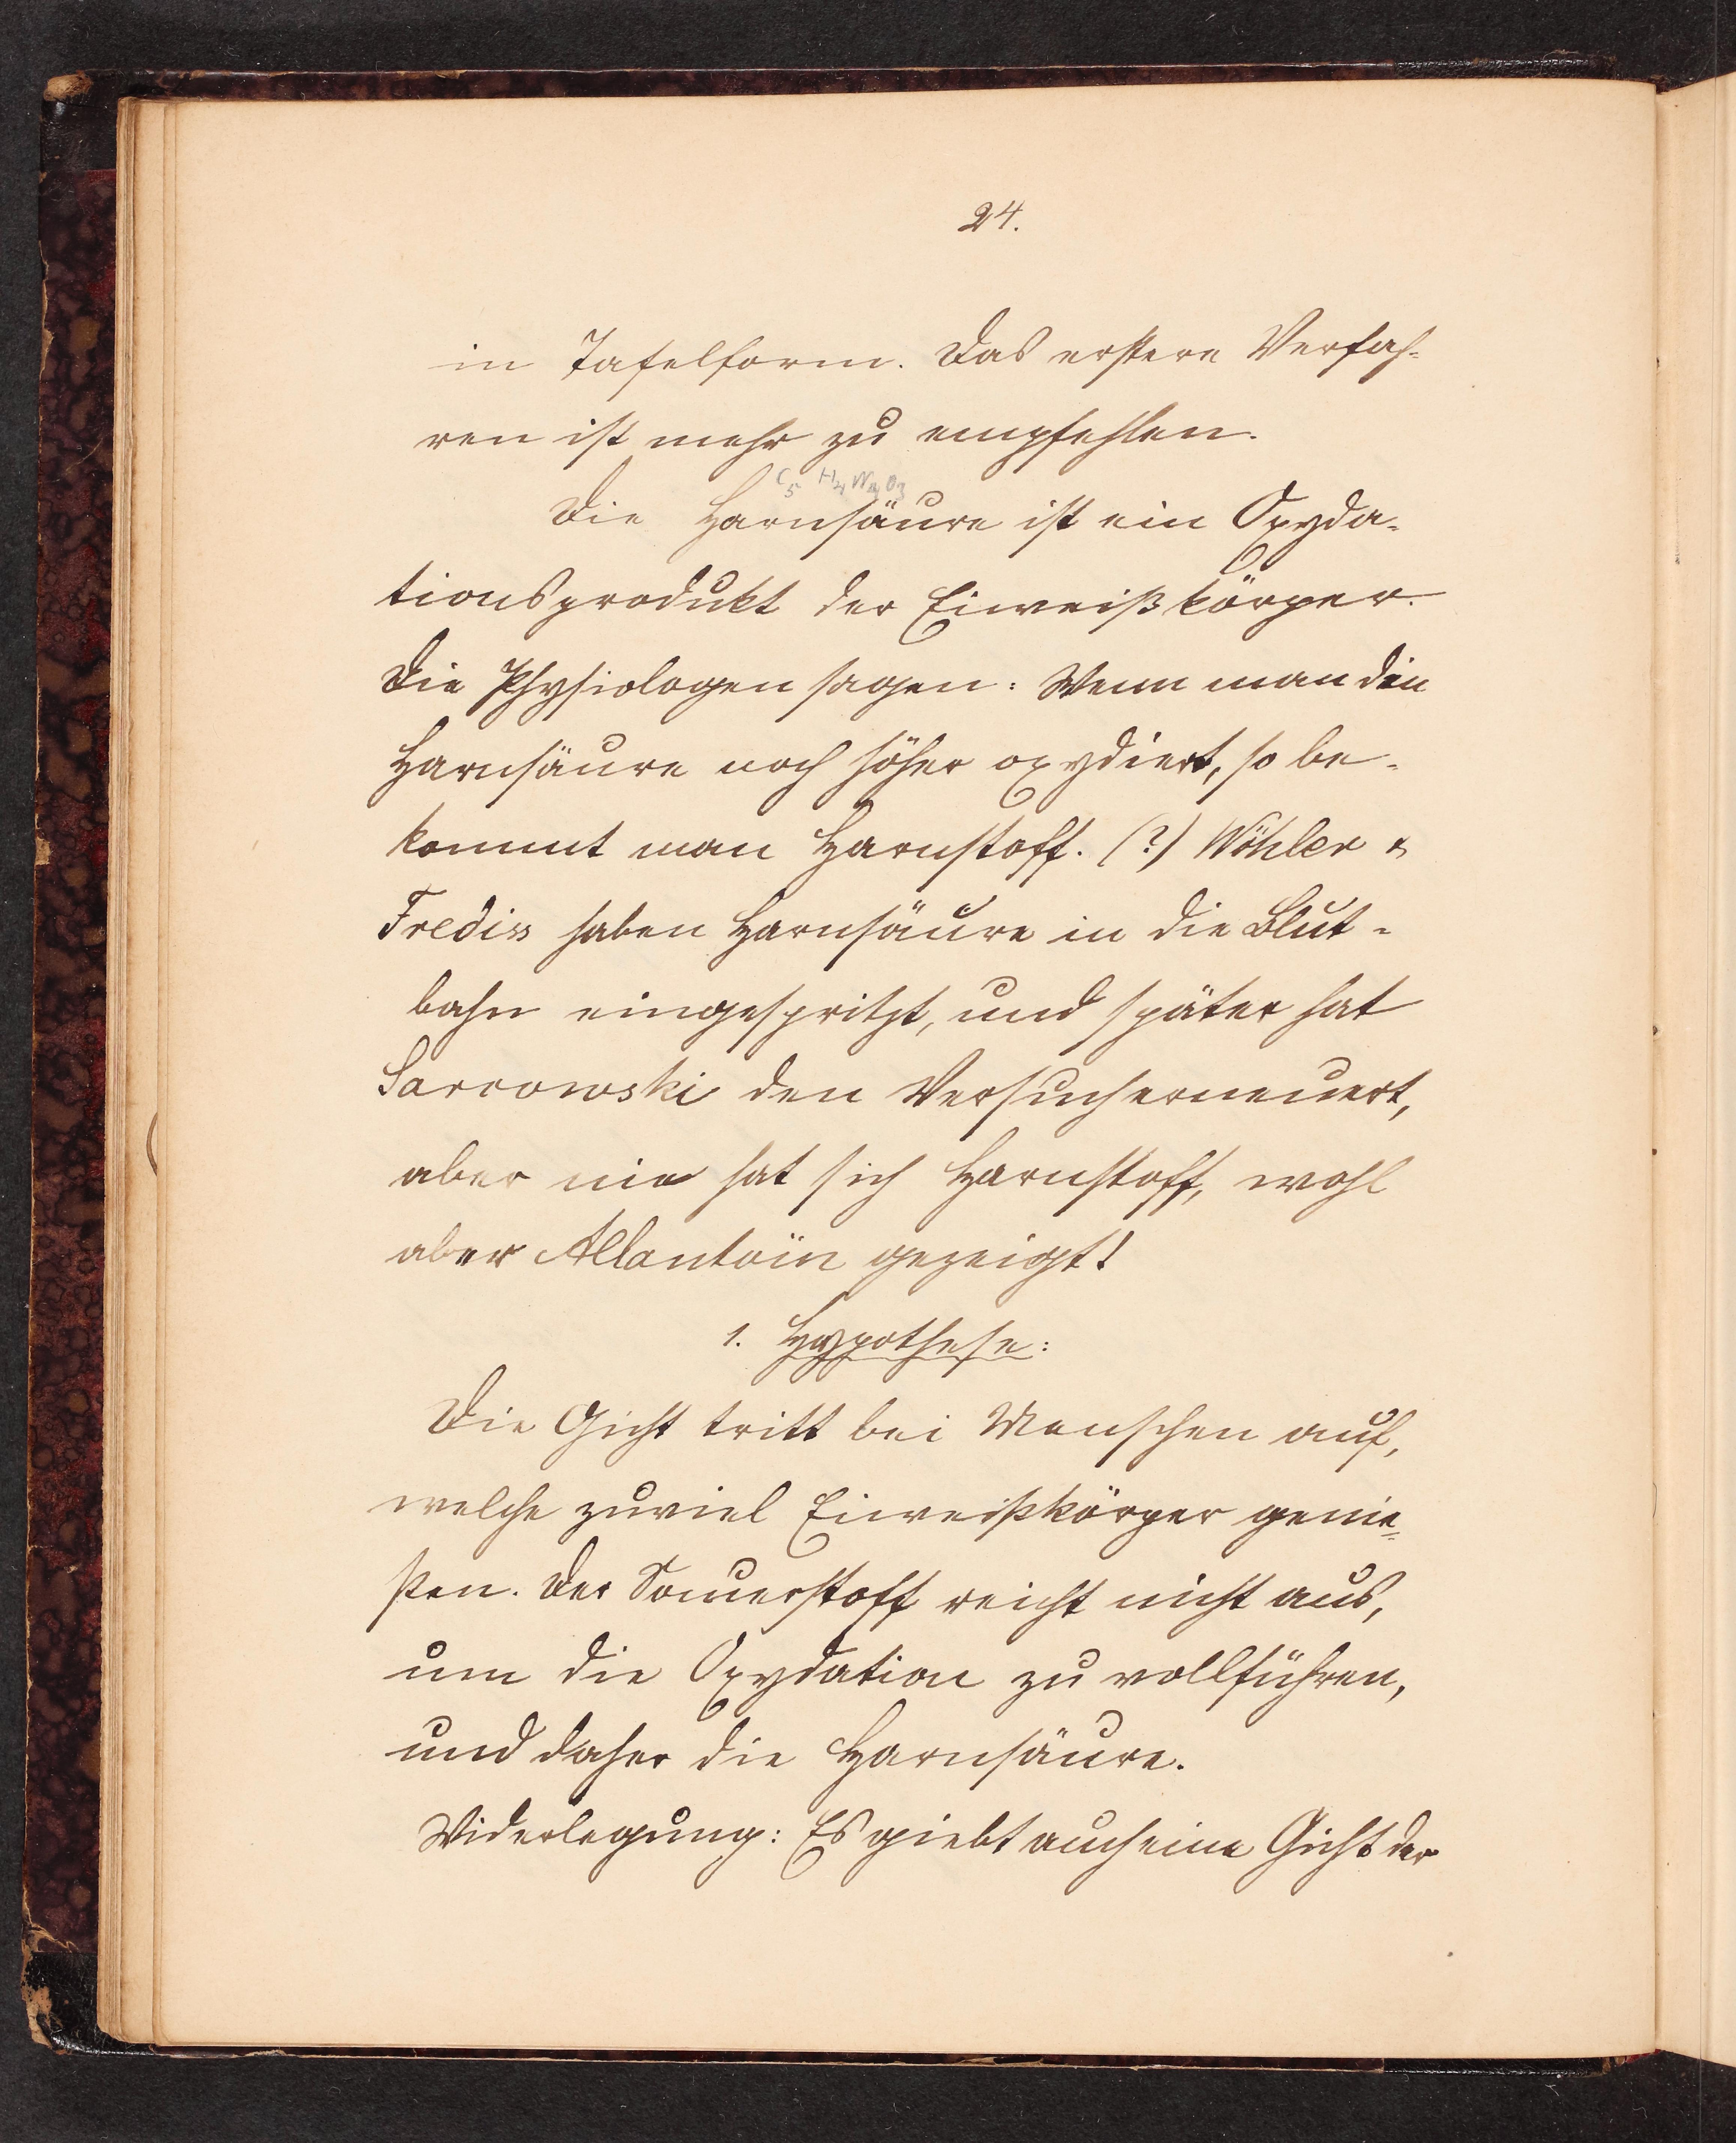 24.
in Tafelform. Das erstere Verfah-
ren ist mehr zu empfehlen.
C5 H4 N4 O3
Die Harnsäure ist ein Oxyda-
tionsprodukt der Eiweißkörper.
Die Physiologen sagen: Wenn man die
Harnsäure noch höher oxydiert, so be-
kommt man Harnstoff. (?) Wöhler &
Frediss haben Harnsäure in die Blut-
bahn eingespritzt, und später hat
Sarrowski den Versuch erneuert,
aber nie hat sich Harnstoff, wohl
aber Allantoïn gezeigt!
1. Hypothese:
Die Gicht tritt bei Menschen auf,
welche zuviel Eiweißkörper genie-
ßen. Der Sauerstoff reicht nicht aus,
um die Oxydation zu vollführen,
und daher die Harnsäure.
Widerlegung: Es giebt auch eine Gicht der